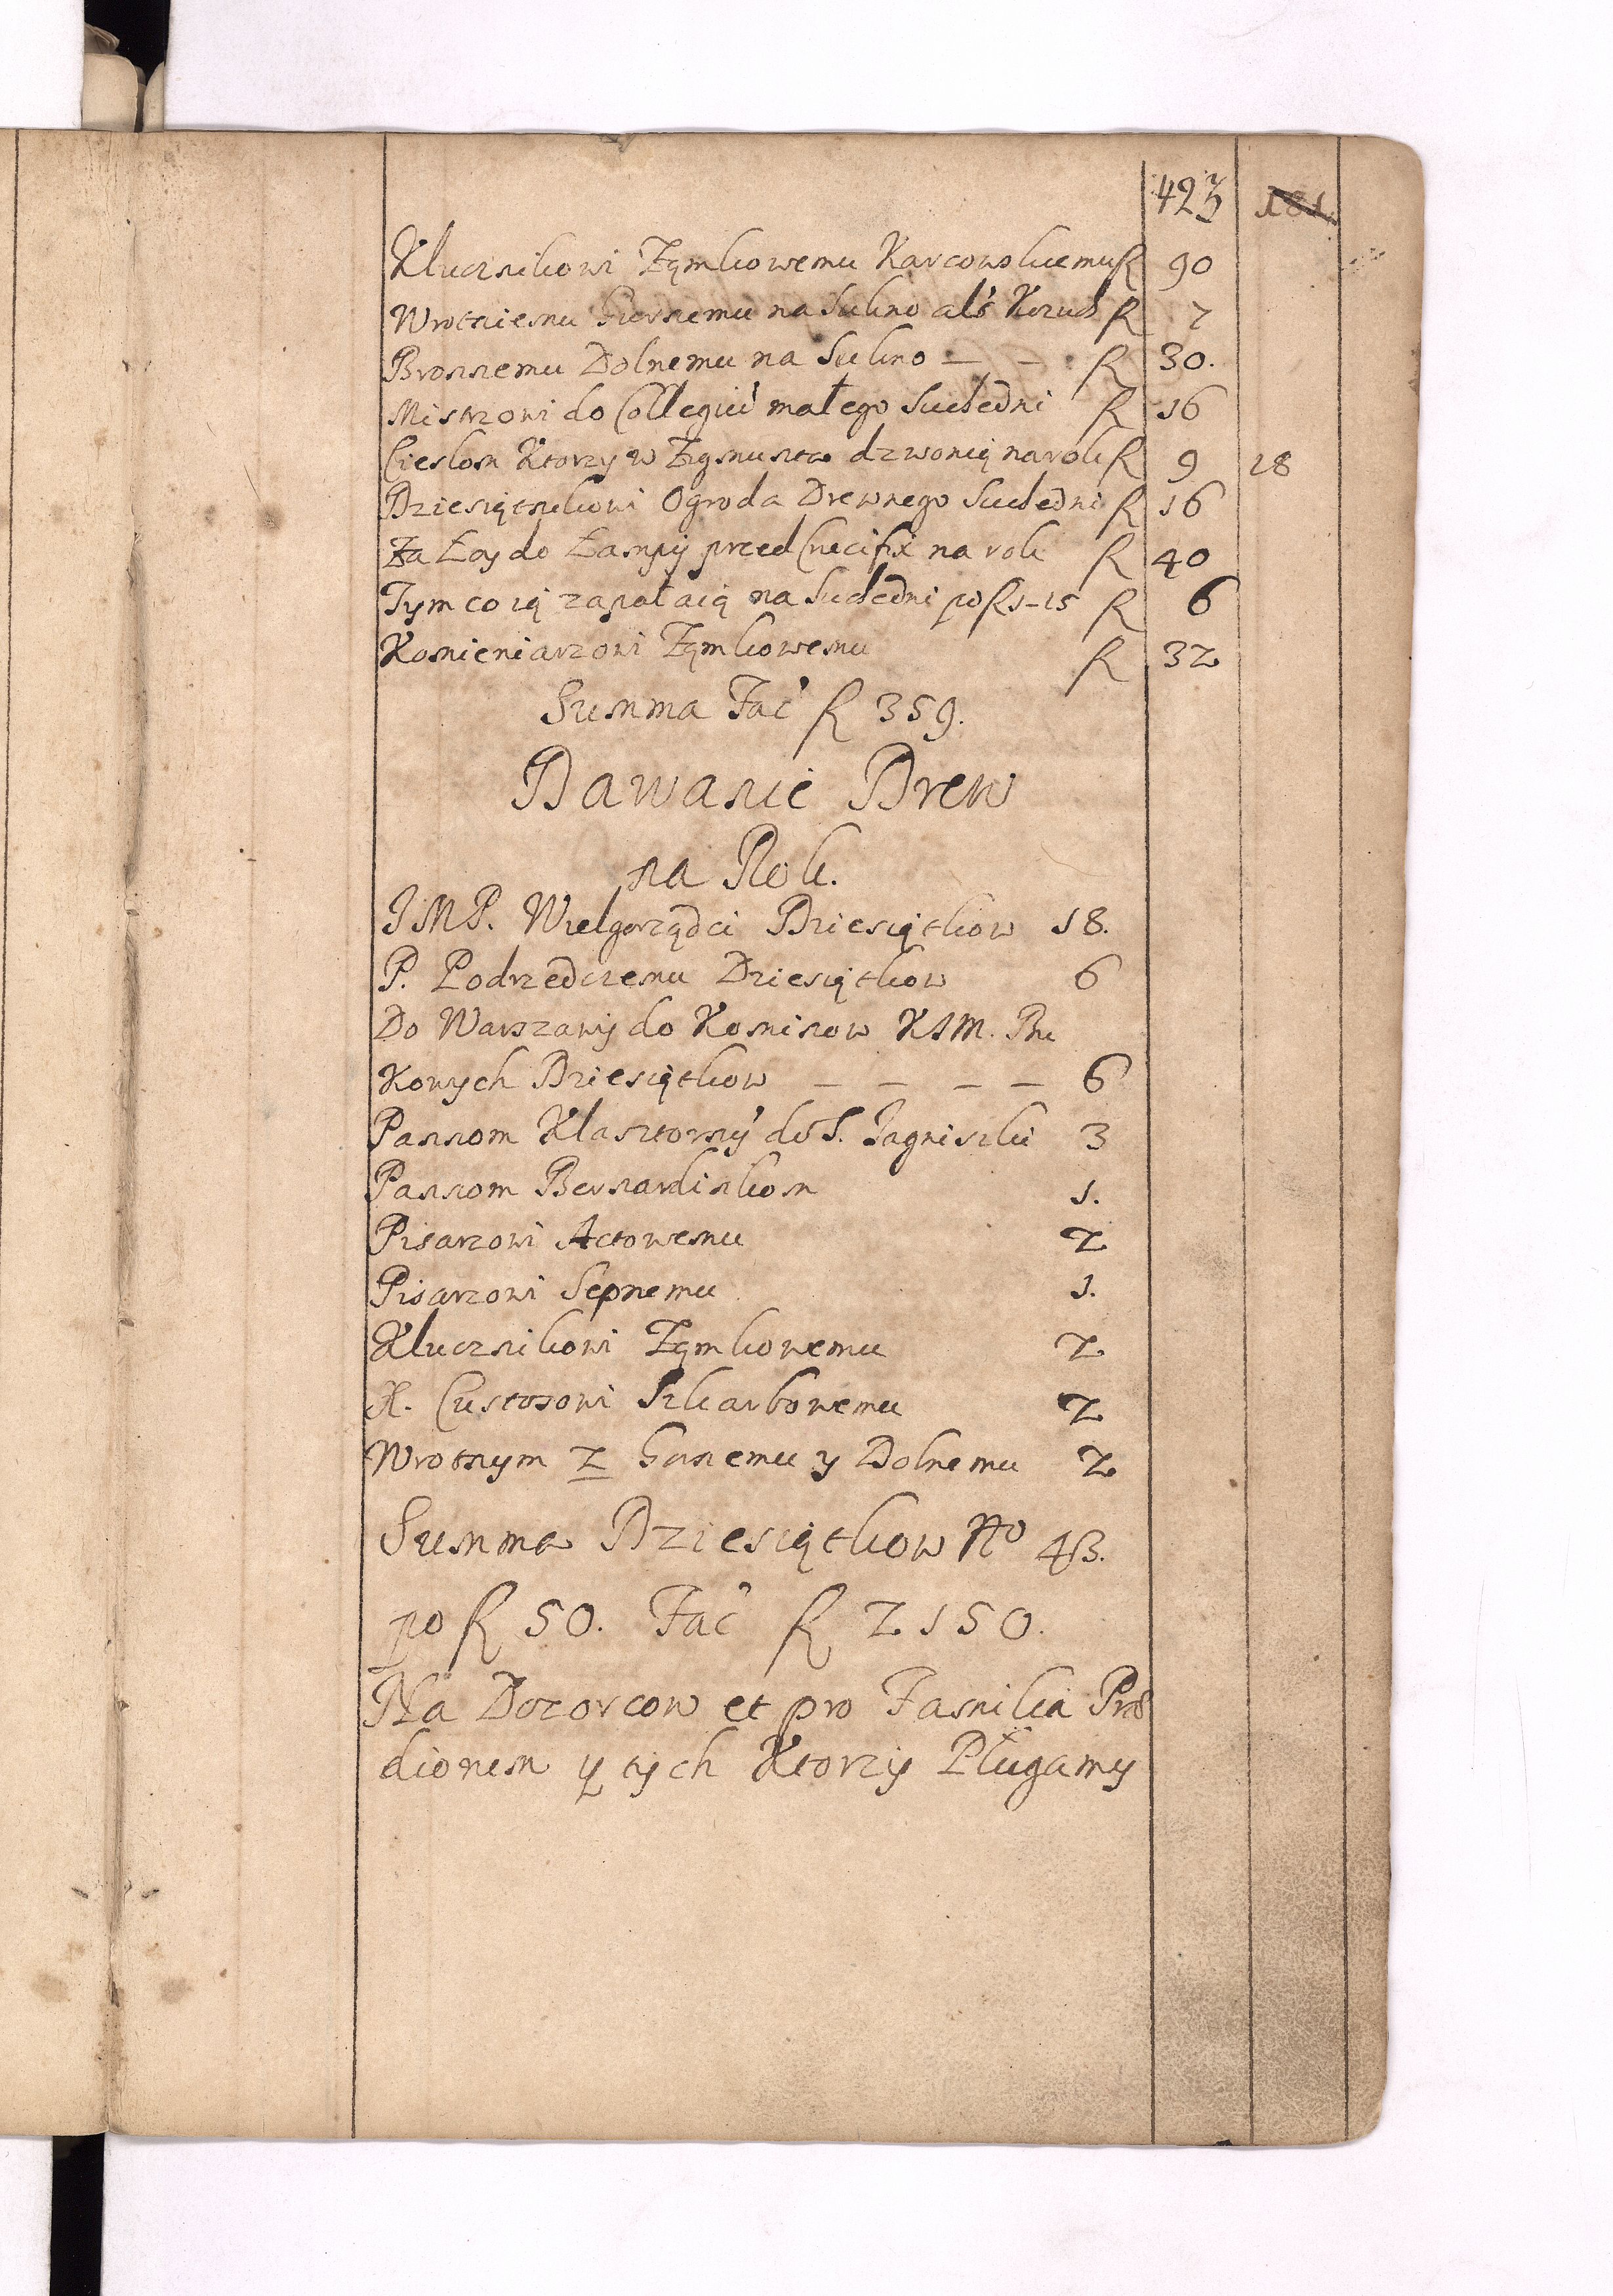 423 181
Klucznikowi Zamkowemu Karcowskiemu R 90
Wrotnemu Gurnemu na Sukno als Kozuch R 7
Bronnemu Dolnemu na Sukno — — R 30.
Mistrzowi do Collegiu małego Suchedni R 16
Cieslom Ktorzy w Zygmunta dzwonią na rok R 9 18
Dziesiętnikowi Ogroda Drewnego Suchedni R 16
Za Łoy do Lampy przed Crucifix na rok R 40
Tym co ią zapałaią na Suchedni po R 1-15 R 6
Kominiarzowi Zamkowemu R 32
Summa Fac R 359.
Dawanie Drew
na Rok.
J M P. Wielgorządci Dziesiątkow 18.
P. Podrzędczemu Dziesiątkow 6
Do Warszawy do Kominow K J M. Bu
kowych Dziesiątkow — — — — 6
Pannom Klasztorny do S. Jagniszki 3
Pannom Bernardinkom 1.
Pisarzowi Actowemu 2
Pisarzowi Sepnemu 1.
Klucznikowi Zamkowemu 2
X. Custosowi Szkarbowemu 2
Wrotnym 2 Gurnemu y Dolnemu 2
Summa Dziesiątkow No 43.
po R 50. Fac R 2150.
Na Dozorcow et pro Familia Præ
diorum y tych Ktorzy Pługamy